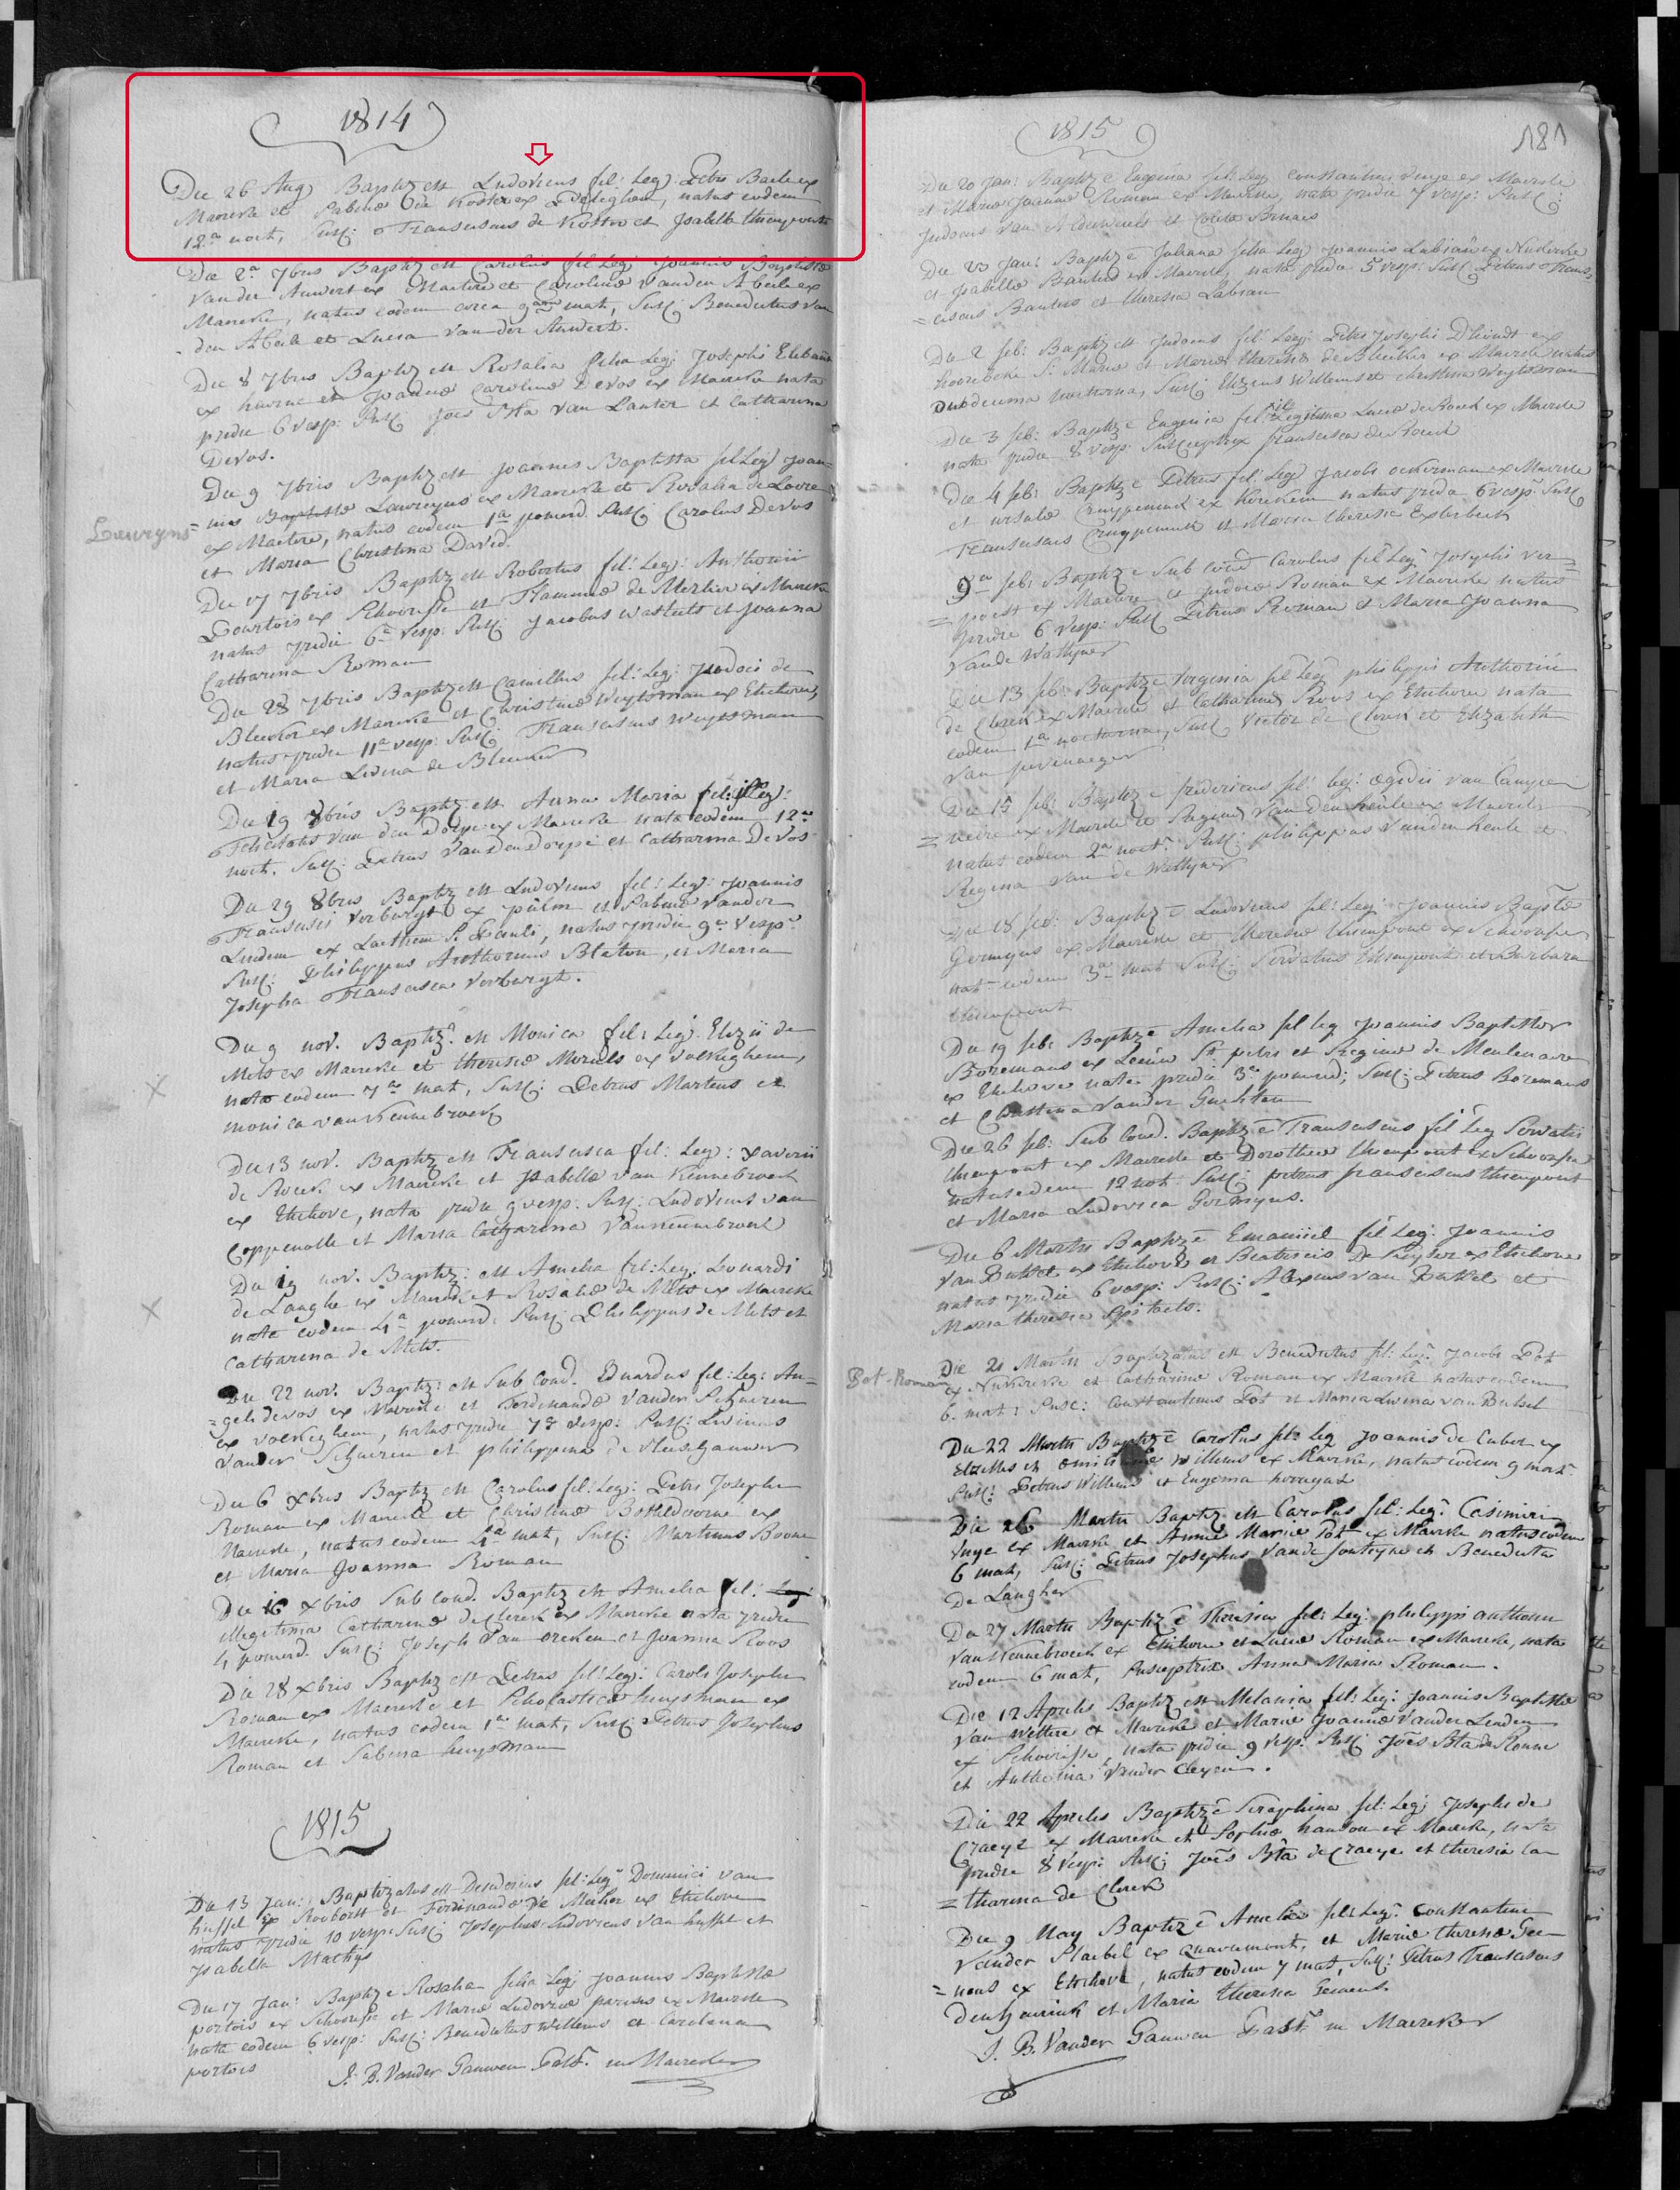 1814
Die 26 Aug Baptiz est Ludovicus fil: Leg: Petri Baele ex
Maercke et Sabinæ de Koster ex natus eodem
12.a noct, Susc: Fransiscus de Koster et Isabella thienpont
Die 2a 7bris Baptiz est Carolus fil: Leg: Joannis Baptistæ
Vander Auwert ex Maeltre et Carolinæ vanden Abeele ex
Maercke, natus eodem circa 9am mat, Susc: Benedictus van
den Abeele et Lucia van der Auwert.
Die 8 7bris Baptiz est Rosalia filia Leg: Josephi
ex huerne et Joannæ Carolinæ Devos ex Maercke nata
pridie 6 vesp: Susc: Joes Bta Van Lanter et Catharina
Devos.
Die 9 7bris Baptiz est Joannes Baptista fil Leg: Joan=
Lauwryns
=nis Baptistæ Lauwryns ex Maercke et Rosalia de
ex Maeltre, natus eodem 1a pomerid. Susc: Carolus Devos
et Maria Christina David.
Die 17 7bris Baptiz est Robertus fil: Leg: Anthonii
Courtois ex Schoorisse et de Merlier ex Maercke
natus pridie 6a vesp: Susc: Jacobus et Joanna
Catharina Roman
Die 28 7bris Baptiz est Camillus fil: Leg: Judoci de
Bleecker ex Maercke et Christinæ Weytsman ex Etichove,
natus pridie 11a vesp: Susc: Fransiscus Weytsman
et Maria Livina de Bleecker
Die 19 8bris Baptiz est Anna Maria fil: illeg:
Felicitatis van den Dorpe ex Maercke nata eodem 12a
noct. Susc: Petrus Van den Dorpe et Catharina De Vos
Die 29 8bris Baptiz est Ludovicus fil: Leg: Joannis
Fransisci Verburgt ex et Sabinæ Vander
Linden ex Laethem St. Pauli, natus pridie 9a Vesp.
Susc: Philippus Anthonius Blaton, et Maria
Josepha Fransisca Verburgt.
Die 9 nov. Baptiz. est Monica fil: Leg: Eligii de
Mets ex Maercke et theresiæ Moreels ex Volkeghem,
nata eodem 7a mat, Susc: Petrus Martens et
monica van Kennebroeck
Die 13 nov. Baptiz est Fransisca fil: Leg: Xaverii
de Rocek ex Maercke et Isabellæ van Kennebroeck
ex Etichove, nata pridie 9 vesp: Susc: Ludovicus van
Coppenolle et Maria Catharina Vankennebroeck
Die 19 nov. Baptiz: est Amelia fil: Leg: Leonardi
de Langhe ex Maercke et Rosaliæ de Mets ex Maercke
nata eodem 4a pomerid: Susc: Philippus de Mets et
Catharina de Mets.
Die 22 nov. Baptiz: est Sub Cond. Eduardus fil: Leg: An=
=geli devos ex Maercke et Ferdinandæ Vander Schueren
ex Volkeghem, natus pridie 7a vesp: Susc: Livinus
Vander Schueren et philippina de
Die 6 Xbris Baptiz est Carolus fil: Leg: Petri Josephi
Roman ex Maercke et Christinæ Botteldoorne ex
Maercke, natus eodem 4a mat, Susc: Martinus Boone
et Maria Joanna Roman
Die 16 Xbris Sub Cond. Baptiz est Amelia fil:
illegitima Catharinæ de Clerck ex Maercke nata pridie
4 pomerid. Susc: Joseph Van et Joanna Roos
Die 28 Xbris Baptiz est Petrus fil: Leg: Caroli Josephi
Roman ex Maercke et Scholasticæ huysman ex
Maercke, natus eodem 1a mat, Susc: Petrus Josephus
Roman et Sabina huysman
1815
Die 13 Jan: Baptizatus est Desiderius fil: Leg: Dominici van
huffel ex et Ferdinandæ De ex Etichove
natus pridie 10 vesp: Susc: Josephus Ludovicus van huffel et
Isabella Mathys
Die 17 Jan: Baptiz e Rosalia filia Leg: Joannis Baptistæ
portois ex Schoorisse et Mariæ Ludovicæ ex Maercke
nata eodem 6 vesp: Susc: Benedictus Willems et Carolina
portois
J. B. Vander Gauwen Past. in Maercke
1815
181
Die 20 Jan: Baptiz e Eugenia fil: Leg: Constantini Inge ex Maercke
et Mariæ Joannæ Roman ex Maercke, nata pridie 7 vesp: Susc:
Judocus Van et
Die 23 Jan: Baptiz e Juliana filia Leg: Joannis Labiau ex Nukercke
et Isabellæ Bauters ex Maercke, nata pridie 5 vesp: Susc: Petrus Frans=
=ciscus Bauters et theresia Labiau
Die 2 feb: Baptiz est Judocus fil: Leg: Petri Josephi D'hondt ex
hoorebeke St Mariæ et Mariæ theresiæ de Bleecker ex Maercke natus
duodecima nocturna, Susc: Eligius Willems et christina Weytsman
Die 3 feb: Baptiz e Eugenia fil illegitima Luciæ de Rocek ex Maercke
nata pridie 8 vesp: Susceptrix fransisca de Rocek
Die 4 feb: Baptiz e Petrus fil: Leg: Jacobi ockerman ex Maercke
et ursulæ Cruypeninck ex Kerckem natus pridie 6 vesp: Susc
Fransiscus Cruypeninck et Maria theresia
9a feb: Baptiz e Sub Cond Carolus fil Leg: Josephi Ver=
=poest ex Maeltre et Judocæ Roman ex Maercke natus
pridie 6 Vesp: Susc Petrus Roman et Maria Joanna
Vande Wattyne
Die 13 feb: Baptiz e Virginia fil Leg philippi Anthonii
de Clerck ex Maercke et Catharinæ Roos ex Etichove nata
eodem 1a nocturna, Susc Victor de Clerck et Elizabeth
Van
Die 15 feb: Baptiz e fredericus fil: leg: ægidii van Campe
=neire ex Maercke et Reginæ Van Den heule ex Maercke
natus eodem 2a noct. Susc: philippus Vanden heule et
Regina van de Wattyne
Die 18 feb: Baptiz e Ludovicus fil: Leg: Joannis Baptæ
Germyns ex Maercke et theresiæ thienpont ex Schoorisse
nat. eodem 3a mat Susc: Servatius thienpont et Barbara
thienpont
Die 19 feb: Baptiz e Amelia fil leg Joannis Baptistæ
Boremans ex St petri et Reginæ de Meulenaere
ex Etichove nata pridie 3a pomerid; Susc: Petrus Boremans
et Christina Vander
Die 26 feb: Sub Cond. Baptiz e Fransiscus fil Leg Servatii
thienpont ex Maercke et Dorotheæ thienpont ex Schoorisse
natus eodem 12 noct. Susc: petrus fransiscus thienpont
et Maria Ludovica Germyns.
Die 6 Martii Baptiz e Emanuel fil Leg: Joannis
Van Butsel ex Etichove et Beatricis De Keyser ex Etichove
natus pridie 6 vesp: Susc: Alexius van Butsel et
Maria theresia
Pot-Roman
Die 21 Martii Baptizatus est Benedictus fil: Leg: Jacobi Pot
ex Nukercke et Catharinæ Roman ex Maercke natus eodem
6. mat: Susc: Constantinus Pot et Maria Livina van Butsel
Die 22 Martii Baptiz e Carolus fil: leg Joannis de Cubber ex
Elzelles et Willems ex Maercke, natus eodem 9 mat.
Susc: Petrus Willems et Eugenia
Die 26 Martii Baptiz est Carolus fil: Leg: Casimiri
Inge ex Maercke et Annæ Mariæ Pot ex Maercke natus eodem
6 mat, Susc: Petrus Josephus Vande fonteyne et Benedicta
De Langhe
Die 27 Martii Baptiz e Theresia fil: Leg: philippi anthonii
Van Kennebroeck ex Etichove et Luciæ Roman ex Maercke, nata
eodem 6 mat, Susceptrix Anna Maria Roman.
Die 12 Aprilis Baptiz est Melania fil: Leg: Joannis Baptistæ
Van Wettere ex Maercke et Mariæ Joannæ Vander Linden
ex Schoorisse, nata pridie 9 vesp: Susc: Joes Bta de Ronne
et Anthonia Vander Cleyen.
Die 22 Aprilis Baptiz e Seraphina fil: Leg: Josephi de
Craeye ex Maercke et Sophiæ ex Maercke, nata
pridie 8 Vesp: Susc: Joes Bta de Craeye et theresia Ca=
=tharina de Clerck
Die 9 May Baptiz e Amelia fil: Leg: Constantini
Vander Staebel ex Quaremont, et Mariæ theresiæ Gee=
=nens ex Etichove, natus eodem 7 mat, Susc: Petrus Fransiscus
Denhaerinck et Maria theresia Geenens.
J. B. Vander Gauwen Past. in Maercke